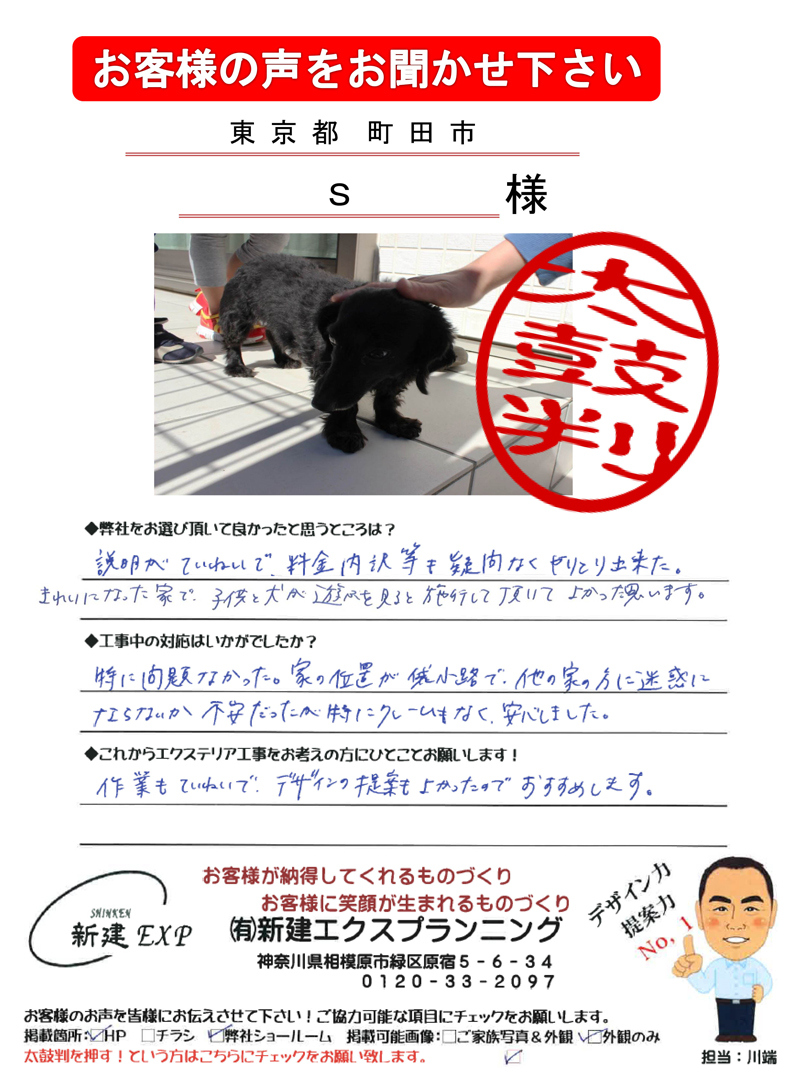 お客様の声をお聞かせ下さい
東京都 町田市
S 様
太鼓判
◆弊社をお選び頂いて良かったと思うところは？
説明がていねいで、料金内訳等も疑問なくやりとり出来た。
きれいになった家で、子供と犬が遊ぶを見ると施行して頂いてよかった思います。
◆工事中の対応はいかがでしたか？
特に問題なかった。家の位置が袋小路で、他の家の方に迷惑に
ならないか不安だったが特にクレームもなく、安心しました。
◆これからエクステリア工事をお考えの方にひとことお願いします！
作業もていねいで、デザインの提案もよかったのでおすすめします。
お客様が納得してくれるものづくり
お客様に笑顔が生まれるものづくり
SHINKEN
新建 EXP
㈲新建エクスプランニング
神奈川県相模原市緑区原宿５－６－３４
０１２０－３３－２０９７
デザイン力
提案力
No,1
お客様のお声を皆様にお伝えさせて下さい！ご協力可能な項目にチェックをお願いします。
掲載箇所：☑HP □チラシ ☑弊社ショールーム 掲載可能画像：□ご家族写真＆外観 ☑外観のみ
太鼓判を押す！という方はこちらにチェックをお願い致します。 ☑
担当：川端